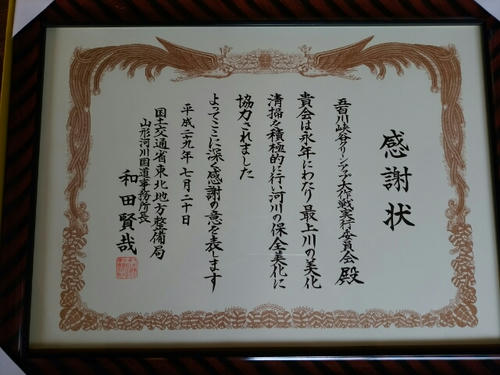 感謝状
五百川峡谷クリーンアップ大作戦実行委員会 殿
貴会は永年にわたり最上川の美化
清掃を積極的に行い河川の保全美化に
協力されました
よってここに深く感謝の意を表します
平成二十九年七月二十日
国土交通省東北地方整備局
山形河川国道事務所長
和田賢哉